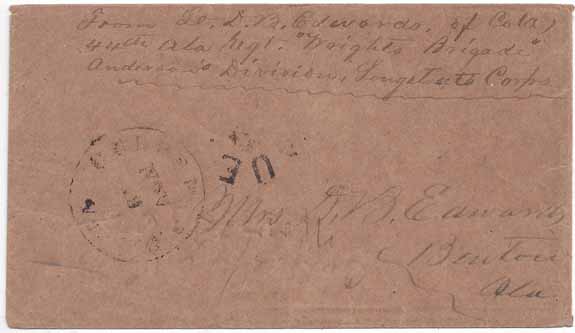 From Lt. D. B. Edwards, of Co. A,
44th Ala Regt. "Wrights Brigade"
Anderson's Division, Longstreets Corps
DUE
Mrs. D. B. Edwards
Benton
Ala.